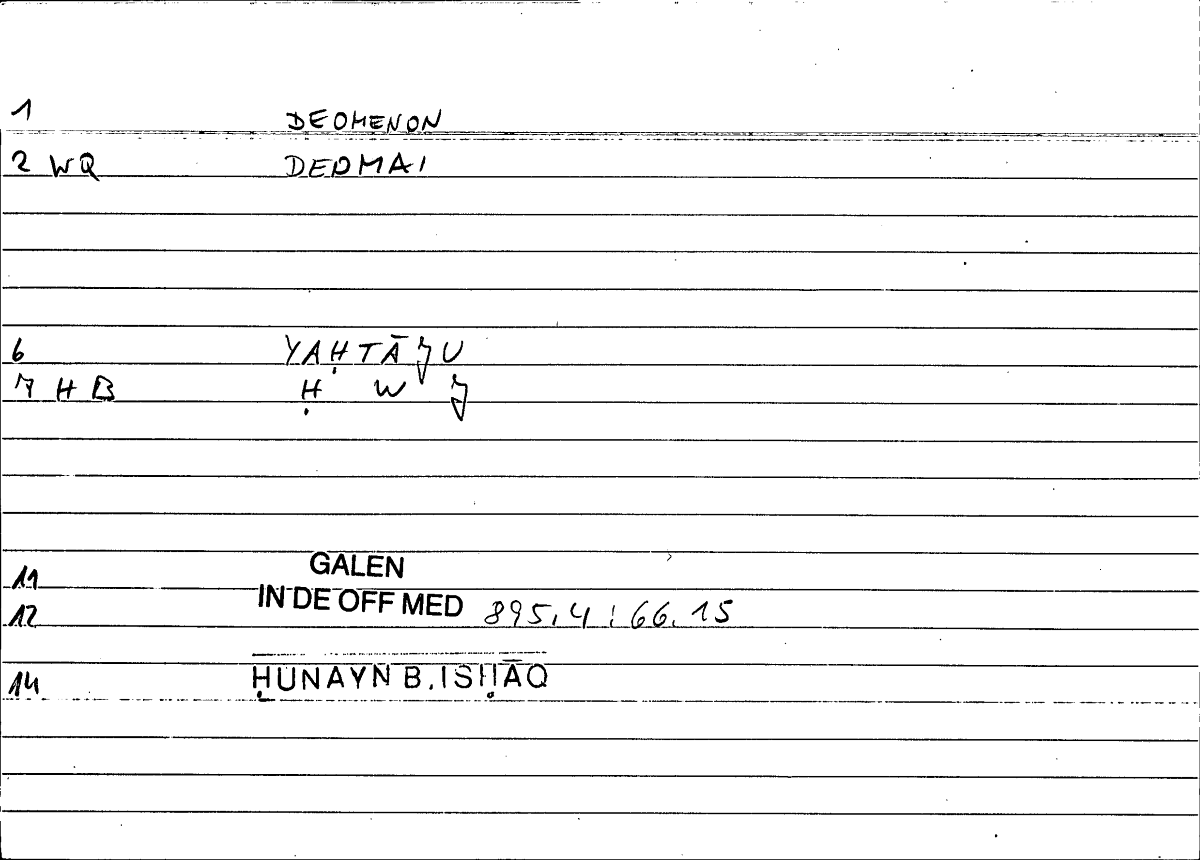 1 DEOMENON
2 WQ DEOMAI
6 YAḤTĀJU
7 HB Ḥ W J
GALEN
11
IN DE OFF MED 895,4 : 66.15
12
14 ḤUNAYN B. ISḤĀQ